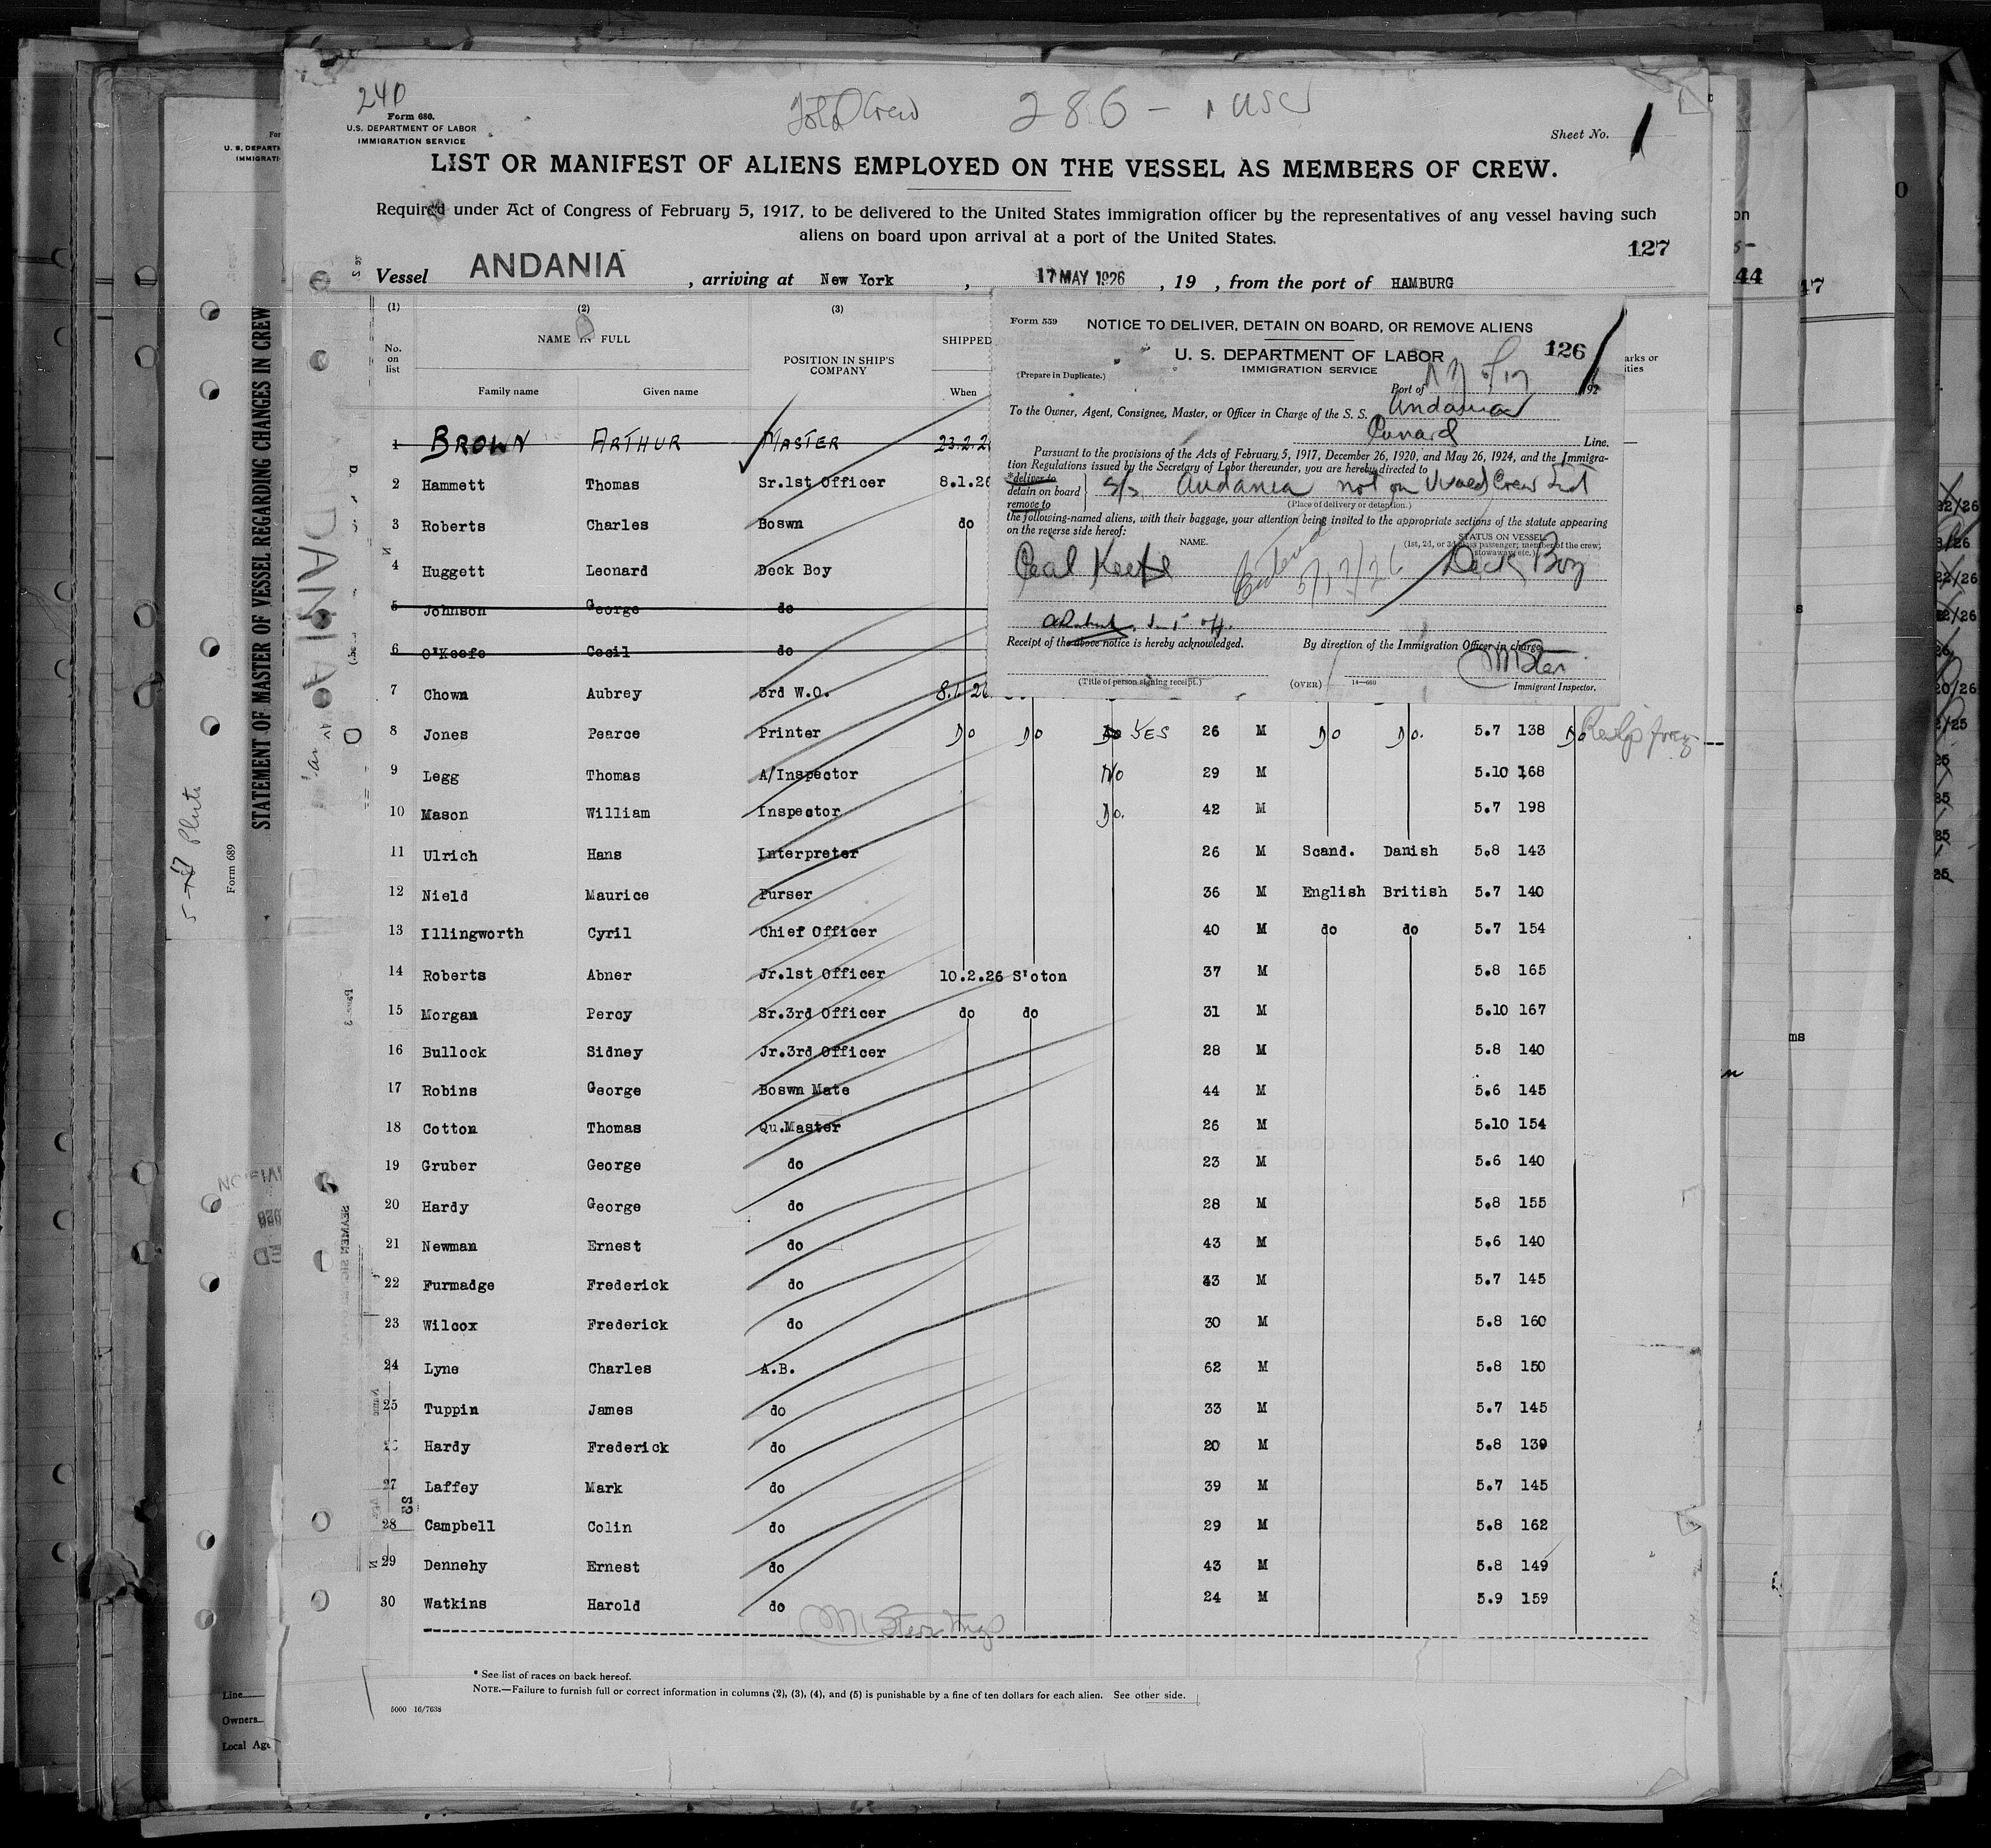 240
Form 680.
U.S. DEPARTMENT OF LABOR
IMMIGRATION SERVICE
Total Crew 286 - 1 USC
Sheet No. 1
LIST OR MANIFEST OF ALIENS EMPLOYED ON THE VESSEL AS MEMBERS OF CREW.
Required under Act of Congress of February 5, 1917, to be delivered to the United States immigration officer by the representatives of any vessel having such
aliens on board upon arrival at a port of the United States.
127
Vessel ANDANIA , arriving at New York , 17 MAY 1926 , 19 , from the port of HAMBURG
(1) (2) (3)
No. on list
NAME IN FULL
Family name Given name
POSITION IN SHIP'S COMPANY
SHIPPED
When
Form 559
NOTICE TO DELIVER, DETAIN ON BOARD, OR REMOVE ALIENS
U. S. DEPARTMENT OF LABOR
IMMIGRATION SERVICE
126
(Prepare in Duplicate.)
Port of N Y 5/17 192
To the Owner, Agent, Consignee, Master, or Officer in Charge of the S. S. Andania
Cunard Line.
Pursuant to the provisions of the Acts of February 5, 1917, December 26, 1920, and May 26, 1924, and the Immigra-
tion Regulations issued by the Secretary of Labor thereunder, you are hereby directed to
*deliver to
detain on board } S/S Andania not on Visaed Crew List
remove to
(Place of delivery or detention.)
the following-named aliens, with their baggage, your attention being invited to the appropriate sections of the statute appearing
on the reverse side hereof:
NAME.
STATUS ON VESSEL
(1st, 2d, or 3d class passenger; member of the crew; stowaway, etc.)
Cecil Keefe Deck Boy
5/17/26
Receipt of the above notice is hereby acknowledged.
By direction of the Immigration Officer in charge.
(Title of person signing receipt.)
(OVER)
14—660
Immigrant Inspector.
1 BROWN ARTHUR MASTER 23.2.2
2 Hammett Thomas Sr.1st Officer 8.1.26
3 Roberts Charles Boswn do
4 Huggett Leonard Deck Boy
5 Johnson George do
6 O'Keefe Cecil do
7 Chown Aubrey 3rd W.O. 8.1.26
8 Jones Pearce Printer Do Do Do YES 26 M Do Do. 5.7 138 Do
9 Legg Thomas A/Inspector No 29 M 5.10 168
10 Mason William Inspector Do. 42 M 5.7 198
11 Ulrich Hans Interpreter 26 M Scand. Danish 5.8 143
12 Nield Maurice Purser 36 M English British 5.7 140
13 Illingworth Cyril Chief Officer 40 M do do 5.7 154
14 Roberts Abner Jr.1st Officer 10.2.26 S'oton 37 M 5.8 165
15 Morgan Percy Sr.3rd Officer do do 31 M 5.10 167
16 Bullock Sidney Jr.3rd Officer 28 M 5.8 140
17 Robins George Boswn Mate 44 M 5.6 145
18 Cotton Thomas Qu.Master 26 M 5.10 154
19 Gruber George do 23 M 5.6 140
20 Hardy George do 28 M 5.8 155
21 Newman Ernest do 43 M 5.6 140
22 Furmadge Frederick do 43 M 5.7 145
23 Wilcox Frederick do 30 M 5.8 160
24 Lyne Charles A.B. 62 M 5.8 150
25 Tuppin James do 33 M 5.7 145
26 Hardy Frederick do 20 M 5.8 139
27 Laffey Mark do 39 M 5.7 145
28 Campbell Colin do 29 M 5.8 162
29 Dennehy Ernest do 43 M 5.8 149
30 Watkins Harold do 24 M 5.9 159
* See list of races on back hereof.
NOTE.—Failure to furnish full or correct information in columns (2), (3), (4), and (5) is punishable by a fine of ten dollars for each alien. See other side.
5000 16/7638
STATEMENT OF MASTER OF VESSEL REGARDING CHANGES IN CREW
Form 689
Line
Owners
Local Age
44